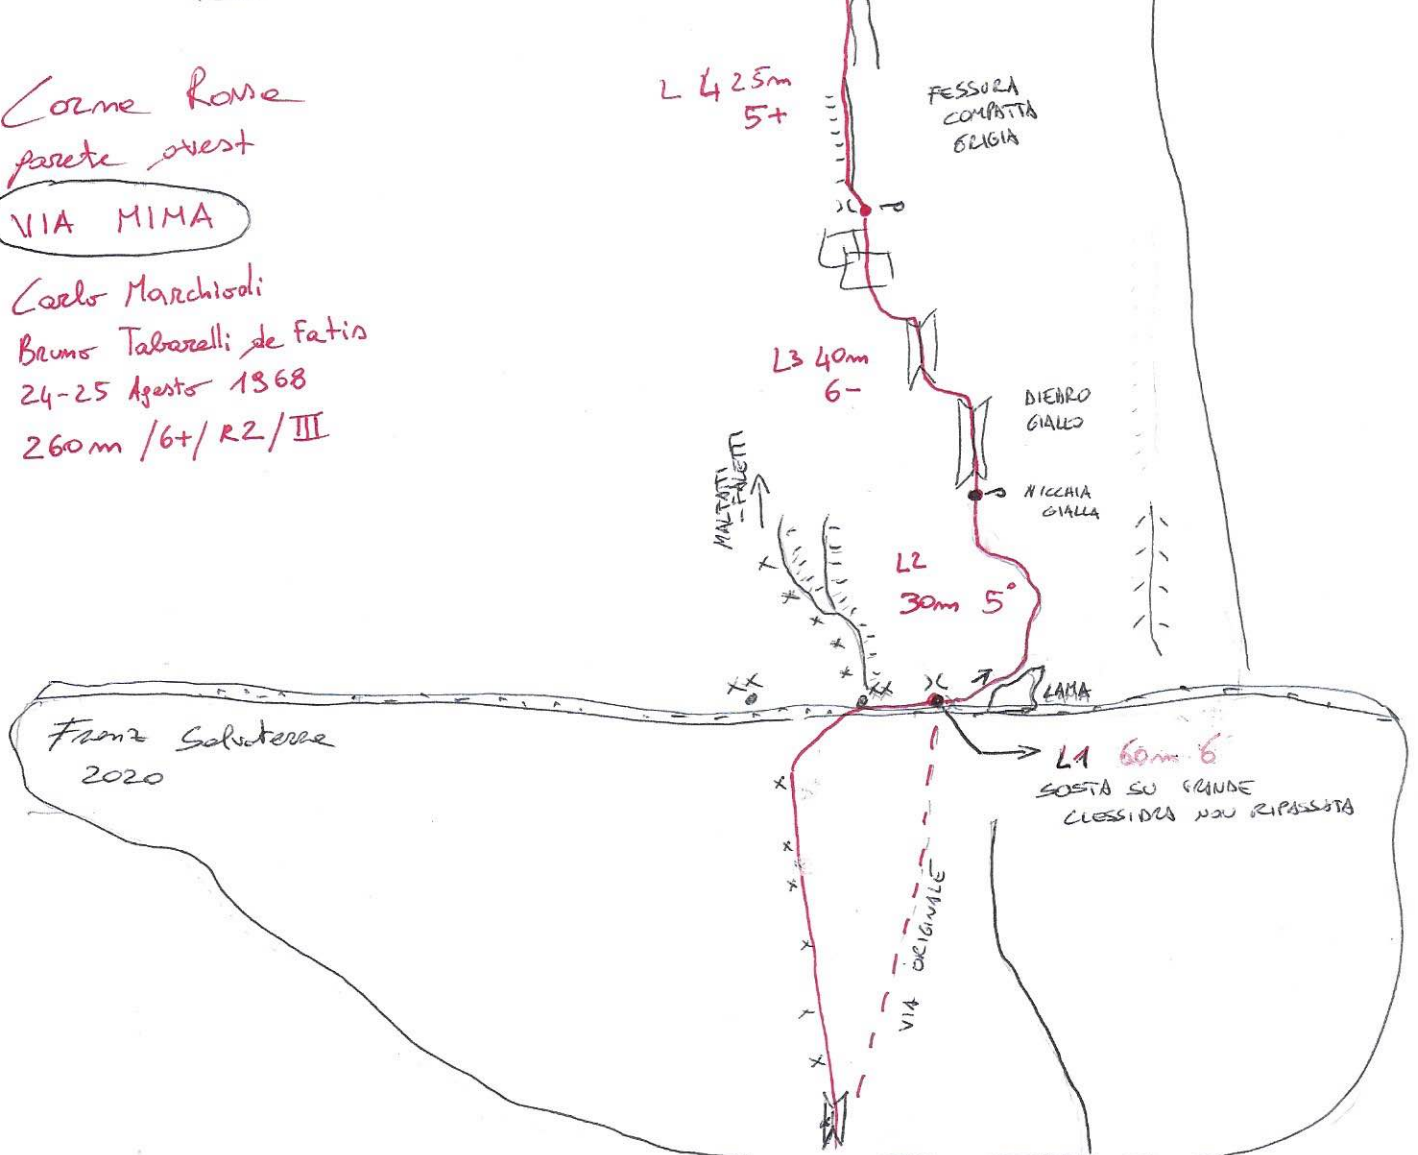 Corne Rosse
parete ovest
VIA MIMA
Carlo Marchiodi
Bruno Tabarelli de Fatis
24-25 Agosto 1968
260m /6+/ R2/ III
L 4 25m
5+
FESSURA
COMPATTA
GRIGIA
L3 40m
6-
DIEDRO
GIALLO
NICCHIA
GIALLA
MALTATTI
-PALETTI
L2
30m 5°
LAMA
Franz Salvaterra
2020
L1 60m 6
SOSTA SU GRANDE
CLESSIDRA NON RIPASSATA
VIA ORIGINALE